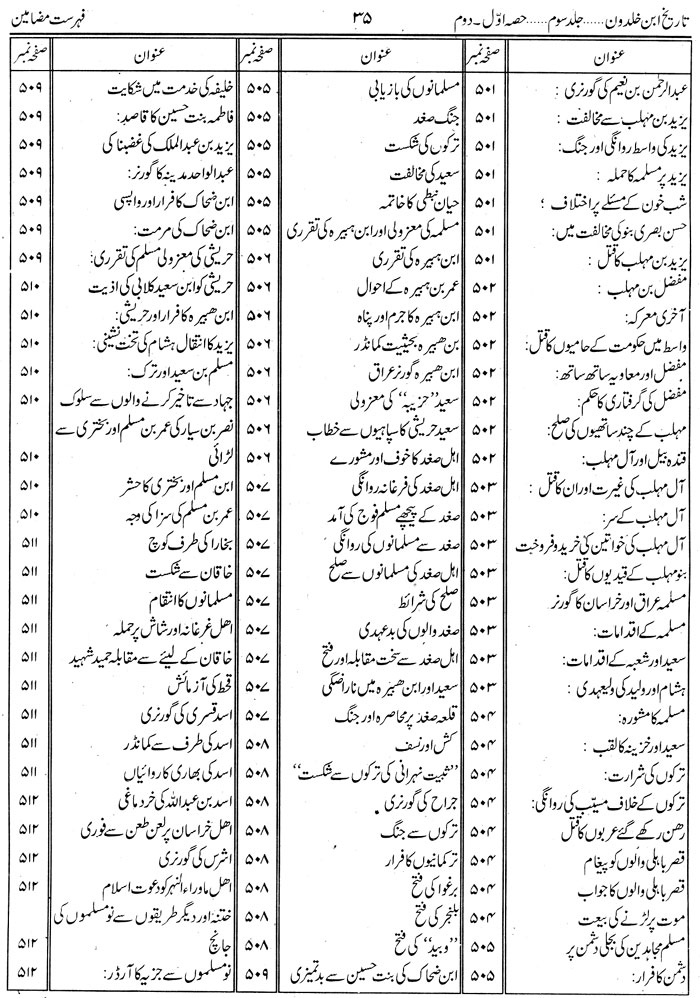 تاریخ ابن خلدون......جلد سوم......حصہ اوّل۔دوم ۳۵ فہرست مضامین
عنوان صفحہ نمبر
عبدالرحمٰن بن نعیم کی گورنری : ۵۰۱
یزید بن مہلب سے مخالفت : ۵۰۱
یزید کی واسط روانگی اور جنگ: ۵۰۱
یزید پر مسلمہ کا حملہ : ۵۰۱
شب خون کے مسئلے پر اختلاف : ۵۰۱
حسن بصری بنو کی مخالفت میں: ۵۰۱
یزید بن مہلب کا قتل : ۵۰۱
مفضل بن مہلب : ۵۰۲
آخری معرکہ: ۵۰۲
واسط میں حکومت کے حامیوں کا قتل: ۵۰۲
مفضل اور معاویہ ساتھ ساتھ: ۵۰۲
مفضل کی گرفتاری کا حکم: ۵۰۲
مہلب کے چند ساتھیوں کی صلح: ۵۰۲
قندہ بیل اور آل مہلب: ۵۰۲
آل مہلب کی غیرت اور ان کا قتل : ۵۰۳
آل مہلب کے سر: ۵۰۳
آل مہلب کی خواتین کی خرید و فروخت ۵۰۳
بنو مہلب کے قیدیوں کا قتل: ۵۰۳
مسلمہ عراق اور خراسان کا گورنر ۵۰۳
مسلمہ کے اقدامات: ۵۰۳
سعید اور شعبہ کے اقدامات: ۵۰۳
ہشام اور ولید کی ولیعہدی : ۵۰۳
مسلمہ کا مشورہ: ۵۰۴
سعید اور خزینہ کا لقب : ۵۰۴
ترکوں کی شرارت: ۵۰۴
ترکوں کے خلاف مسیّب کی روانگی: ۵۰۴
رھن رکھے گئے عربوں کا قتل ۵۰۴
قصر باہلی والوں کو پیغام ۵۰۴
قصر باہلی والوں کا جواب ۵۰۴
موت پر لڑنے کی بیعت ۵۰۴
مسلم مجاہدین کی بجلی دشمن پر ۵۰۵
دشمن کا فرار: ۵۰۵
عنوان صفحہ نمبر
مسلمانوں کی بازیابی ۵۰۵
جنگ صغد ۵۰۵
ترکوں کی شکست ۵۰۵
سعید کی مخالفت ۵۰۵
حیان نبطی کا خاتمہ ۵۰۵
مسلمہ کی معزولی اور ابن ہبیرہ کی تقرری ۵۰۵
ابن ہبیرہ کی تقرری ۵۰۶
عمر بن ہبیرہ کے احوال ۵۰۶
ابن ہبیرہ کا جرم اور پناہ ۵۰۶
بن ھبیرہ بحیثیت کمانڈر ۵۰۶
ابن ھبیرہ گورنر عراق ۵۰۶
سعید "حزیبہ" کی معزولی ۵۰۶
سعید حریشی کا سپاہیوں سے خطاب ۵۰۶
اہل صغد کا خوف اور مشورے ۵۰۶
اہل صغد کی فرغانہ روانگی ۵۰۷
صغد کے پیچھے مسلم فوج کی آمد ۵۰۷
صغد سے مسلمانوں کی روانگی ۵۰۷
اہل صغد کی مسلمانوں سے صلح ۵۰۷
صلح کی شرائط ۵۰۷
صغد والوں کی بدعہدی ۵۰۷
اہل صغد سے سخت مقابلہ اور فتح ۵۰۷
سعید اور ابن ھبیرہ میں ناراضگی ۵۰۷
قلعہ صغد پر محاصرہ اور جنگ ۵۰۷
کش اور نسف ۵۰۸
"ثبیت نہرانی کی ترکوں سے شکست" ۵۰۸
جراح کی گورنری ۵۰۸
ترکوں سے جنگ ۵۰۸
ترکمانیوں کا فرار ۵۰۸
برغوا کی فتح ۵۰۸
بلنجر کی فتح ۵۰۸
"وبید" کی فتح ۵۰۸
ابن ضحاک کی بنت حسین سے بدتمیزی ۵۰۹
عنوان صفحہ نمبر
خلیفہ کی خدمت میں شکایت ۵۰۹
فاطمہ بنت حسین کا قاصد: ۵۰۹
یزید بن عبدالملک کی غضبناکی ۵۰۹
عبدالواحد مدینہ کا گورنر: ۵۰۹
ابن ضحاک کا فرار اور واپسی ۵۰۹
ابن ضحاک کی مرمت: ۵۰۹
حریشی کی معزولی مسلم کی تقرری: ۵۰۹
حریشی کو ابن سعید کلابی کی اذیت ۵۱۰
ابن ھبیرہ کا فرار اور حریشی: ۵۱۰
یزید کا انتقال ہشام کی تخت نشینی: ۵۱۰
مسلم بن سعید اور ترک: ۵۱۰
جہاد سے تاخیر کرنے والوں سے سلوک ۵۱۰
نصر بن سیار کی عمر بن مسلم اور بختری سے
لڑائی ۵۱۰
ابن مسلم اور بختری کا حشر ۵۱۰
عمر بن مسلم کی سزا کی وجہ ۵۱۰
بخارا کی طرف کوچ ۵۱۱
خاقان سے شکست ۵۱۱
مسلمانوں کا انتقام ۵۱۱
اھل غرغانہ اور شاش پر حملہ ۵۱۱
خاقان کے لیئے سے مقابلہ حمید شہید ۵۱۱
قحط کی آزمائش ۵۱۱
اسد قسری کی گورنری ۵۱۱
اسد کی طرف سے کمانڈر ۵۱۱
اسد کی بھاری کاروائیاں ۵۱۱
اسد بن عبداللہ کی خرد ماغی ۵۱۲
اھل خراسان پر لعن طعن سے فوری ۵۱۲
اشرس کی گورنری ۵۱۲
اھل ماوراء النہر کو دعوت اسلام ۵۱۲
ختنہ اور دیگر طریقوں سے نو مسلموں کی
جانچ ۵۱۲
نو مسلموں سے جزیہ کا آرڈر: ۵۱۲